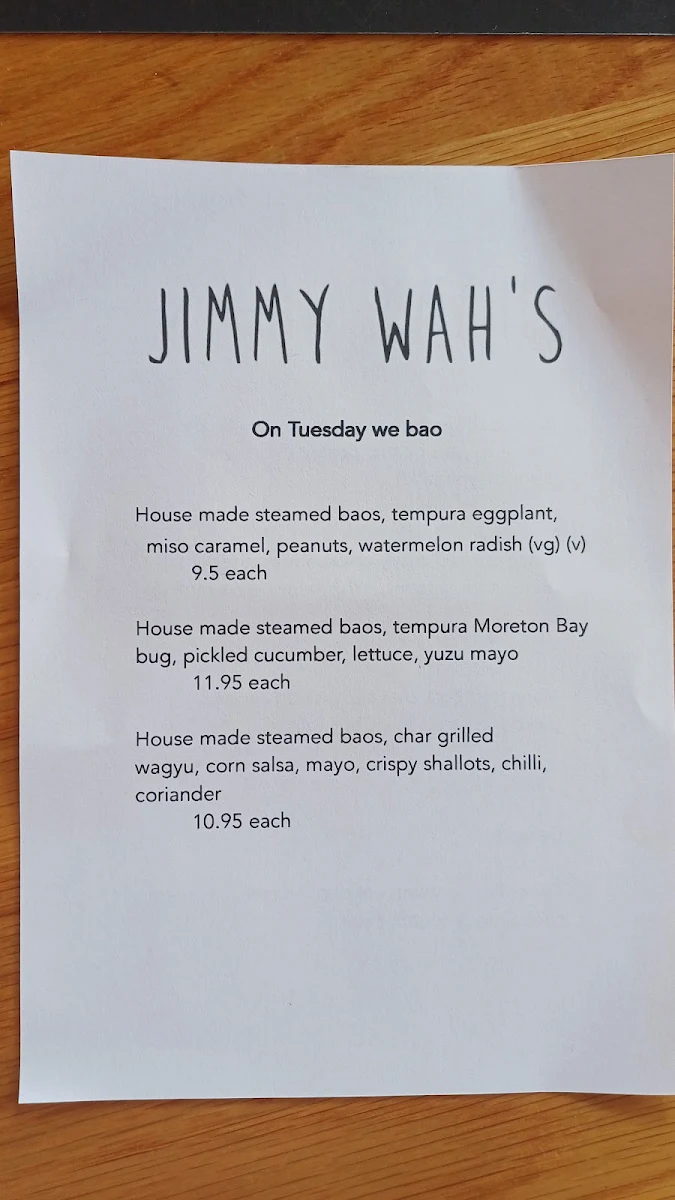 JIMMY WAH'S
On Tuesday we bao
House made steamed baos, tempura eggplant,
miso caramel, peanuts, watermelon radish (vg) (v)
9.5 each
House made steamed baos, tempura Moreton Bay
bug, pickled cucumber, lettuce, yuzu mayo
11.95 each
House made steamed baos, char grilled
wagyu, corn salsa, mayo, crispy shallots, chilli,
coriander
10.95 each